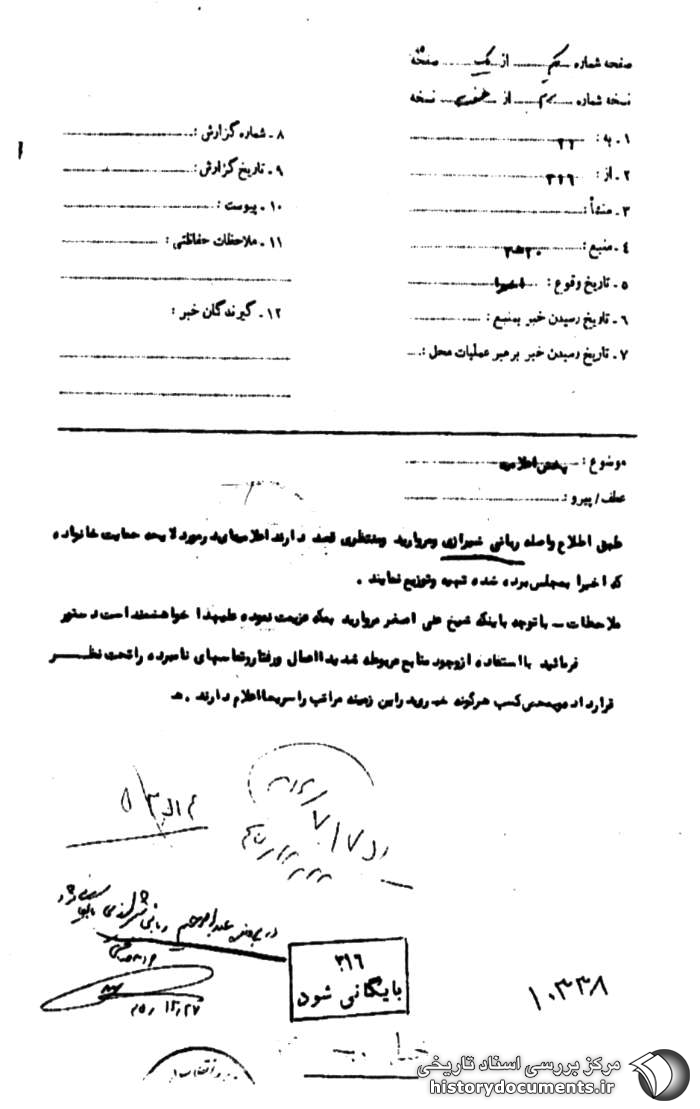 صفحه شماره یکم از یک صفحه
نسخه شماره از هفت نسخه
۱ ـ به : ۲۲
۲ ـ از : ۳۱۶
۳ ـ منشأ :
۴ ـ منبع :
۵ ـ تاریخ وقوع : اخیرا
۶ ـ تاریخ رسیدن خبر بمنبع :
۷ ـ تاریخ رسیدن خبر برهبر عملیات محل :
۸ ـ شماره گزارش :
۹ ـ تاریخ گزارش :
۱۰ ـ پیوست :
۱۱ ـ ملاحظات حفاظتی :
۱۲ ـ گیرندگان خبر :
موضوع : پخش اعلامیه
عطف / پیرو :
طبق اطلاع واصله ربانی شیرازی ومروارید ومنتظری قصد دارند اعلامیه در مورد لایحه حمایت خانواده
که اخیرا بمجلس برده شده تهیه وتوزیع نمایند .
ملاحظات ـ با توجه باینکه شیخ علی اصغر مروارید بمکه عزیمت نموده علیهذا خواهشمند است دستور
فرمائید با استفاده از وجود منابع مربوطه شدیدا اعمال ورفتار وتماسهای نامبرده را تحت نظر
قرار داده وبمحض کسب هرگونه خبری در این زمینه مراتب را سریعا اعلام دارند . ه
در پرونده عبدالرحیم ربانی شیرازی
۴۵/۱۲/۲۷
۳۱۶
بایگانی شود
۱۰۳۳۸
مرکز بررسی اسناد تاریخی
historydocuments.ir